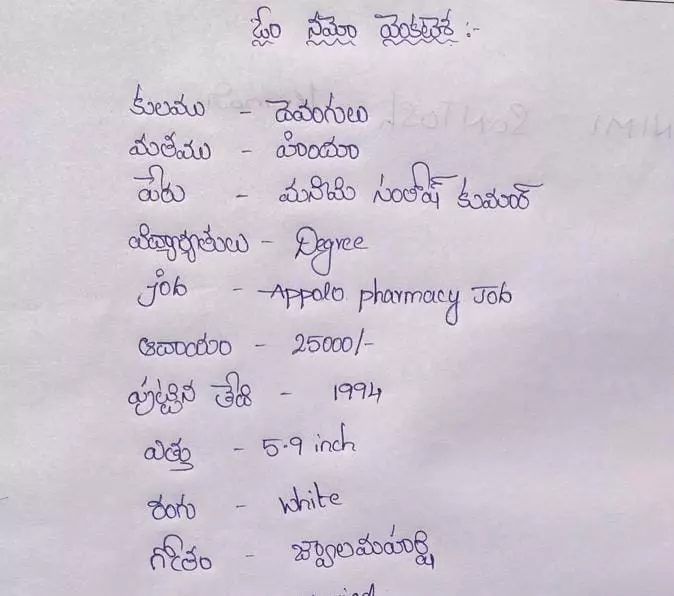 ఓం నమో వెంకటేశ :-
కులము - దేవాంగులు
మతము - హిందూ
పేరు - మనిమి సంతోష్ కుమార్
విద్యార్హతలు - Degree
Job - Appolo pharmacy Job
ఆదాయం - 25000/-
పుట్టిన తేది - 1994
ఎత్తు - 5.9 inch
రంగు - white
గోత్రం - జ్వాలమహర్షి